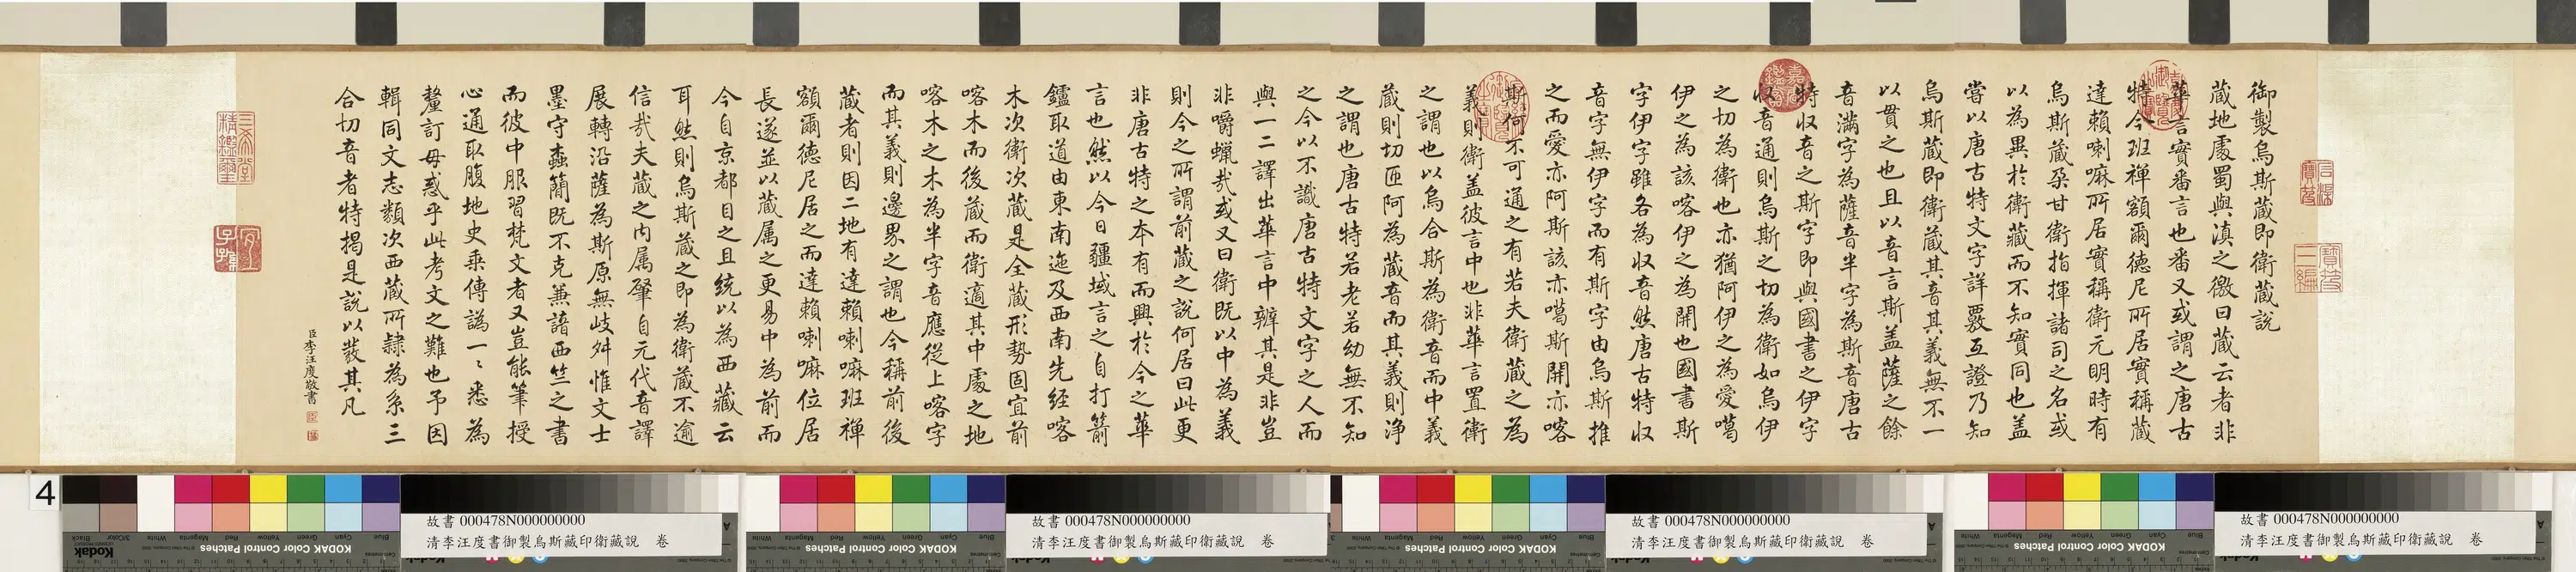 御製烏斯蔵即衛蔵說
蔵地處蜀與滇之徼曰蔵云者非
華言實番言也番又或謂之唐古
特今班禪額爾德尼所居實稱蔵
達賴喇嘛所居實稱衛元明時有
烏斯蔵朶甘衛指揮諸司之名或
以為異於衛蔵而不知實同也盖
嘗以唐古特文字詳覈互證乃知
烏斯蔵即衛蔵其音其義無不一
以貫之也且以音言斯盖薩之餘
音滿字為薩音半字為斯音唐古
特收音之斯字即與國書之伊字
収音通則烏斯之切為衛如烏伊
之切為衛也亦猶阿伊之為愛噶
伊之為該喀伊之為開也國書斯
字伊字雖各為収音然唐古特収
音字無伊字而有斯字由烏斯推
之而愛亦阿斯該亦噶斯開亦喀
斯何不可通之有若夫衛蔵之為
義則衛盖彼言中也非華言置衛
之謂也以烏合斯為衛音而中義
蔵則切匝阿為蔵音而其義則浄
之謂也唐古特若老若幼無不知
之今以不識唐古特文字之人而
與一二譯出華言中辧其是非豈
非嚼蠟㢤或又曰衛既以中為義
則今之所謂前蔵之說何居曰此更
非唐古特之本有而興於今之華
言也然以今日疆域言之自打箭
鑪取道由東南迤及西南先經喀
木次衛次蔵是全蔵形勢固宜前
喀木而後蔵而衛適其中處之地
喀木之木為半字音應従上喀字
而其義則邊界之謂也今稱前後
蔵者則因二地有達賴喇嘛班禪
額爾德尼居之而達賴喇嘛位居
長遂並以蔵属之更易中為前而
今自京都目之且統以為西蔵云
耳然則烏斯蔵之即為衛蔵不逾
信㢤夫蔵之内属肇自元代音譯
展轉沿薩為斯原無歧舛惟文士
墨守蠹簡既不克兼諳西竺之書
而彼中服習梵文者又豈能筆授
心通取腹地史乗傳譌一〻悉為
釐訂毋惑乎此考文之難也予因
輯同文志類次西蔵所隸為系三
合切音者特揭是說以𤼵其凡
臣李汪度敬書
嘉慶鑑賞
三希堂精鑑璽
宜子孫
石渠寶笈
寶笈三編
4
故書 000478N000000000
清李汪度書御製烏斯藏印衛藏說 卷
故書 000478N000000000
清李汪度書御製烏斯藏印衛藏說 卷
故書 000478N000000000
清李汪度書御製烏斯藏印衛藏說 卷
故書 000478N000000000
清李汪度書御製烏斯藏印衛藏說 卷
KODAK Color Control Patches
KODAK Color Control Patches
KODAK Color Control Patches
KODAK Color Control Patches